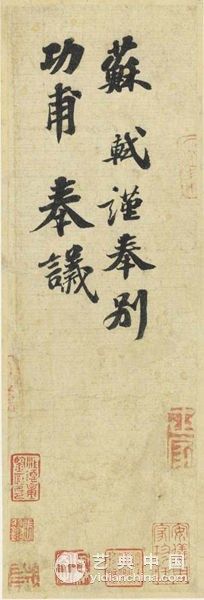 蘇軾謹奉別
功甫奉議
艺典中国
yidianchina.com